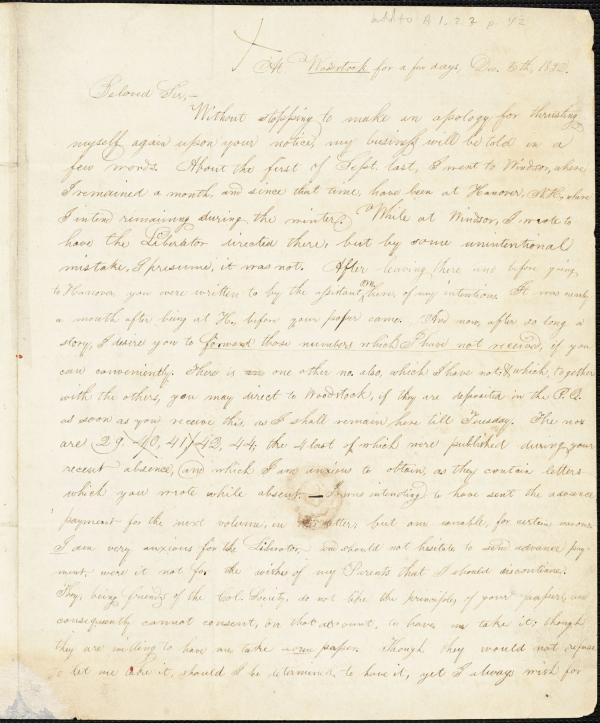 add to A 1. 2 2 p. 42
At Woodstock for a few days, Dec. 5th, 1832.
Beloved Sir,—
Without stopping to make an apology for thrusting
myself again upon your notice, my business will be told in a
few words. About the first of Sept. last, I went to Windsor, where
I remained a month, and since that time, have been at Hanover, N.H., where
I intend remaining during the winter. While at Windsor, I wrote to
have the Liberator directed there, but by some unintentional
mistake, I presume, it was not. After leaving there and before going
to Hanover you were written to by the assistant P.M. there, of my intentions. It was nearly
a month after being at H. before your paper came. And now, after so long a
story, I desire you to forward those numbers which I have not received, if you
can conveniently. There is one other no. also, which I have not: & which, together
with the others, you may direct to Woodstock, if they are deposited in the P.O.
as soon as you receive this, as I shall remain here till Tuesday. The nos
are 29. 40, 41, 43, 44; the 4 last of which were published during your
recent absence, and which I am anxious to obtain, as they contain letters
which you wrote while absent. — I was intending to have sent the advance
payment for the next volume, in this letter, but am unable, for certain reasons.
I am very anxious for the Liberator, and should not hesitate to send advance pay-
ment, were it not for the wishes of my Parents that I should discontinue.
They, being friends of the Col. Society, do not like the principles of your paper, and
consequently cannot consent, on that account, to have me take it; though
they are willing to have me take some paper. Though they would not refuse
to let me take it, should I be determined to have it, yet I always wish for